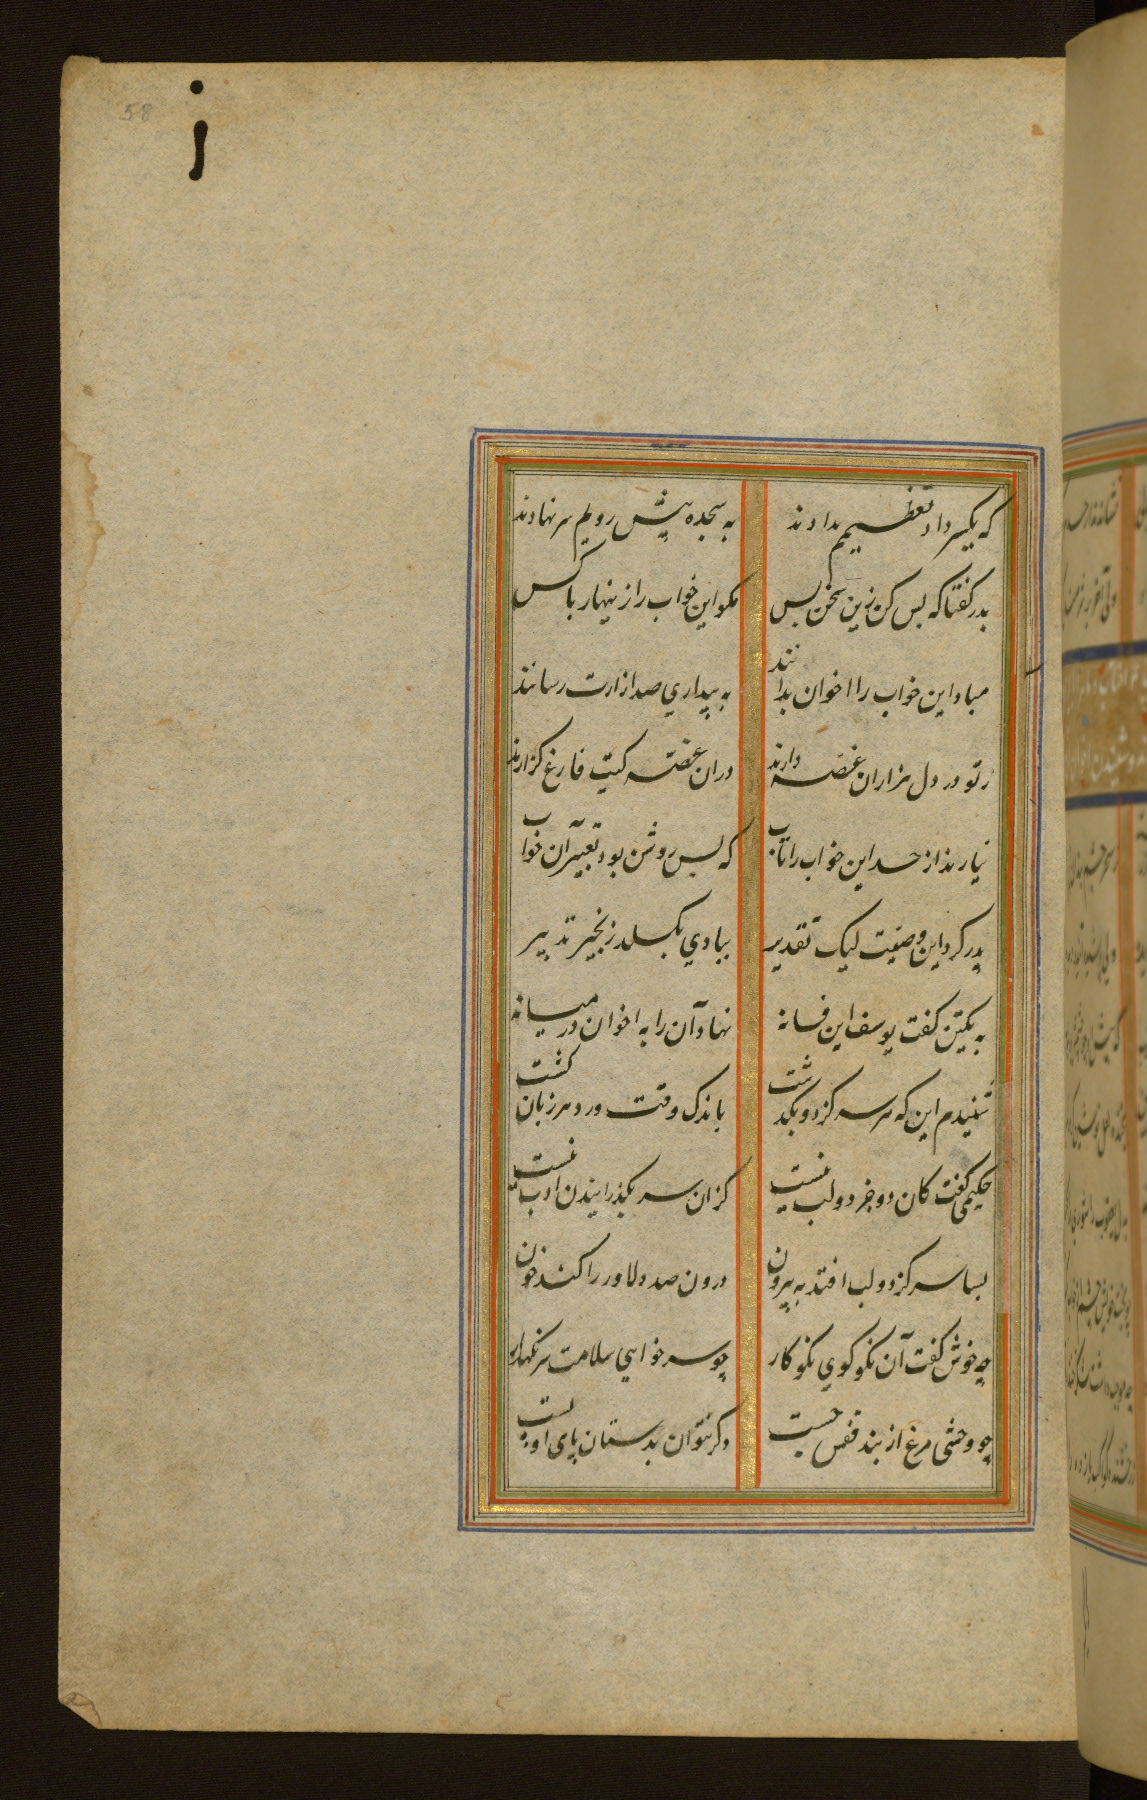 58
که یکسر داد تعظیمم بدادند به سجده پیش رویم سر نهادند
پدر گفتا که بس کن زین سخن بس مگو این خواب را زینهار با کس
مباد این خواب را اخوان بدانند به بیداری صد ازارت رسانند
ز تو در دل هزاران غصه دارند دران غصه کیت فارغ گزارند
نیارند از حسد این خواب را تاب که بس روشن بود تعبیر آن خواب
پدر کرد این وصیت لیک تقدیر ببادی بکسلد زنجیر تدبیر
به یکتن گفت یوسف این فسانه نهاد آن را به اخوان در میانه
شنیدم این که هر سر کز دو بگذشت باندک وقت ورد هر زبان گشت
حکیمی گفت کان دو جز دو لب نیست کزان سر بگذرانیدن ادب نیست
بسا سر کز دو لب افتد به بیرون درون صد دلاور را کند خون
چه خوش گفت آن نکو گوی نکو کار چو سر خواهی سلامت سر نگهدار
چو وحشی مرغ از بند قفس جست دگر نتوان بدستان پای او بست